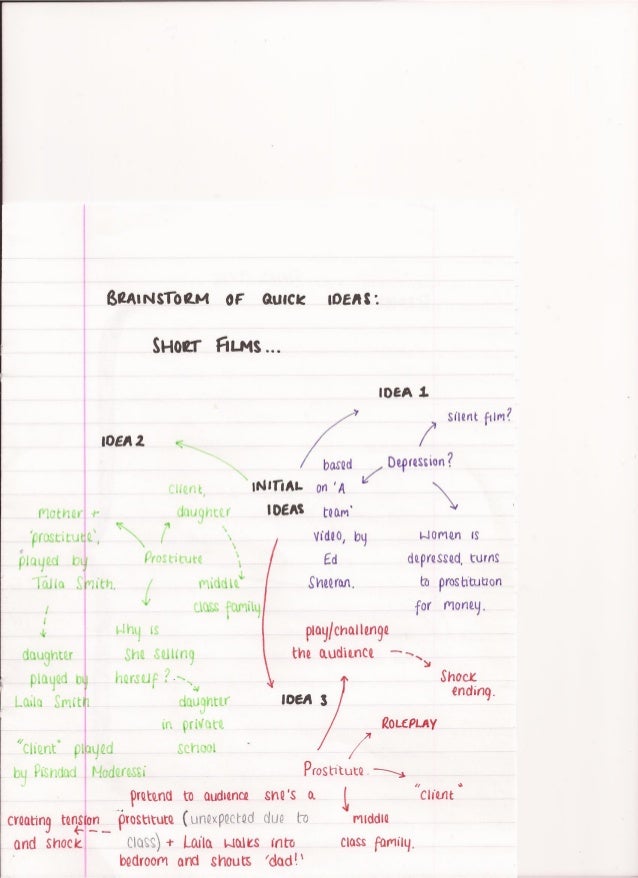 BRAINSTORM OF QUICK IDEAS:
SHORT FILMS...
INITIAL
IDEAS
IDEA 1
Depression?
Silent film?
based
on 'A
team'
video, by
Ed
Sheeran.
Women is
depressed, turns
to prostitution
for money.
IDEA 2
Prostitute
Client,
daughter
middle
class family
Mother +
'prostitute',
played by
Talla Smith.
daughter
played by
Laila Smith
"Client" played
by Pishdad Moderessi
Why is
she selling
herself?
daughter
in private
school
IDEA 3
Prostitute
play/challenge
the audience
Shock
ending.
ROLEPLAY
"client"
middle
class family.
pretend to audience she's a
prostitute (unexpected due to
class) + Laila walks into
bedroom and shouts 'dad!'
creating tension
and shock